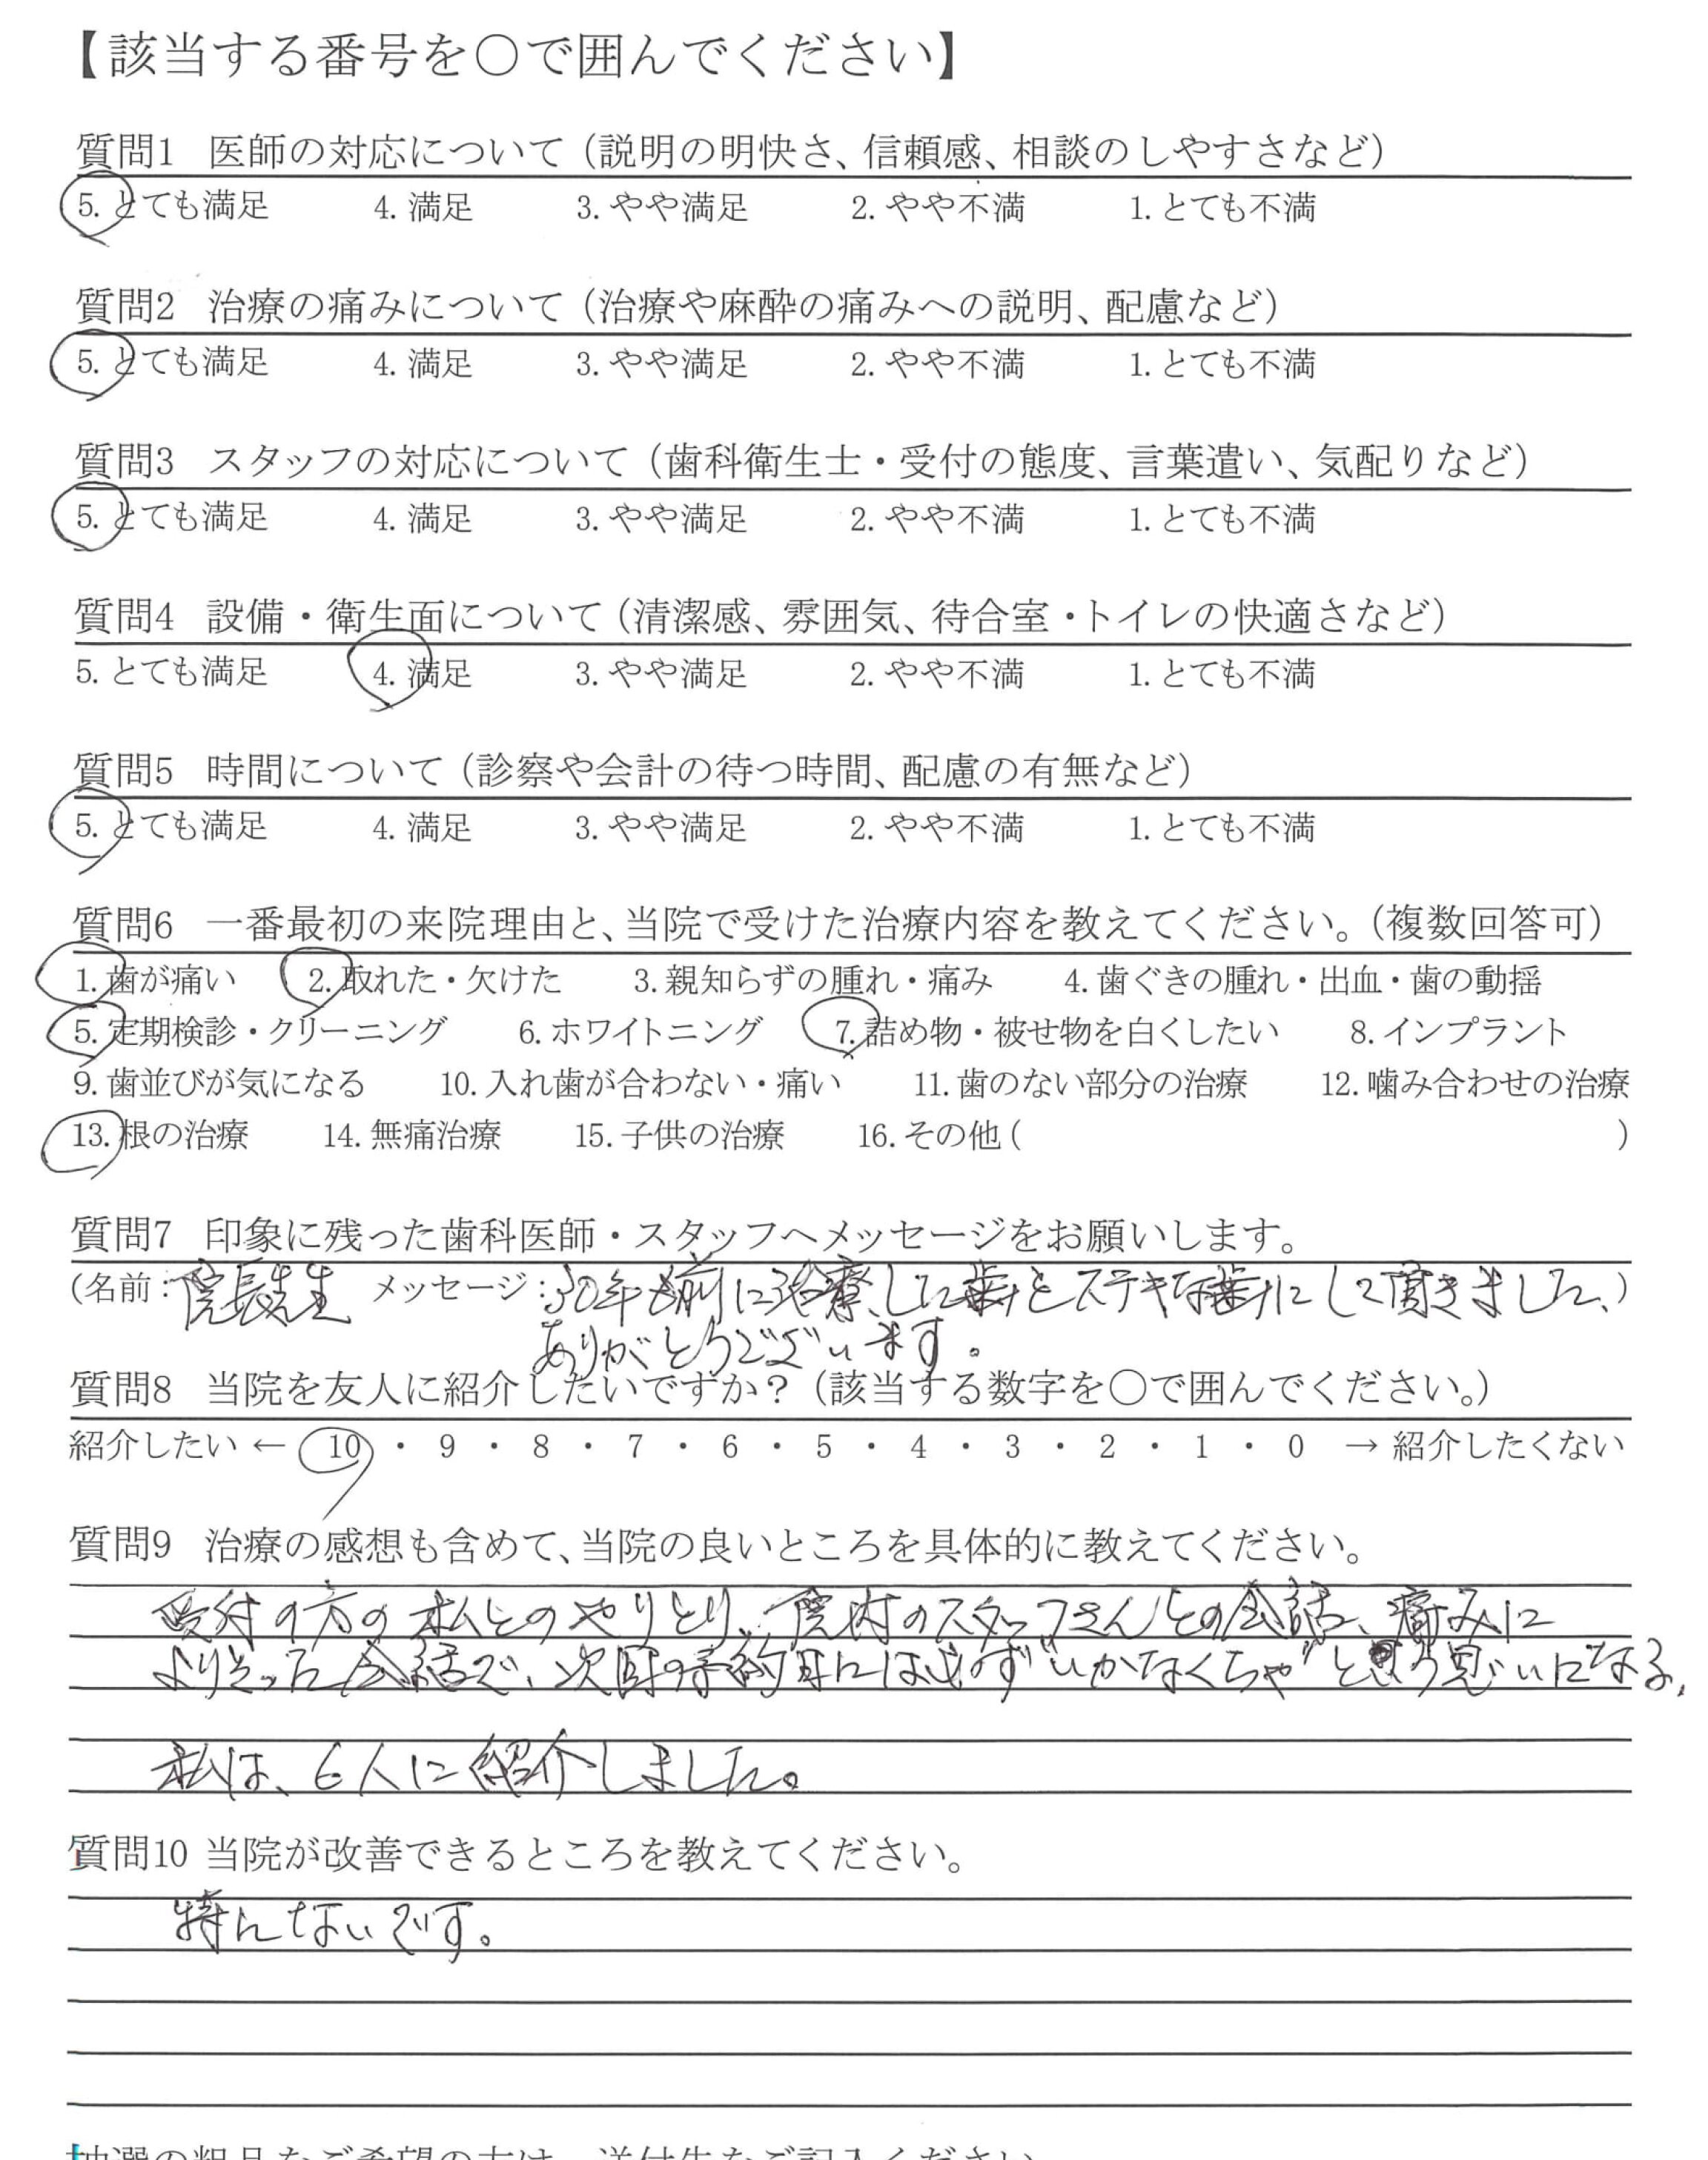 【該当する番号を〇で囲んでください】
質問1 医師の対応について（説明の明快さ、信頼感、相談のしやすさなど）
5. とても満足 4. 満足 3. やや満足 2. やや不満 1. とても不満
質問2 治療の痛みについて（治療や麻酔の痛みへの説明、配慮など）
5. とても満足 4. 満足 3. やや満足 2. やや不満 1. とても不満
質問3 スタッフの対応について（歯科衛生士・受付の態度、言葉遣い、気配りなど）
5. とても満足 4. 満足 3. やや満足 2. やや不満 1. とても不満
質問4 設備・衛生面について（清潔感、雰囲気、待合室・トイレの快適さなど）
5. とても満足 4. 満足 3. やや満足 2. やや不満 1. とても不満
質問5 時間について（診察や会計の待つ時間、配慮の有無など）
5. とても満足 4. 満足 3. やや満足 2. やや不満 1. とても不満
質問6 一番最初の来院理由と、当院で受けた治療内容を教えてください。（複数回答可）
1. 歯が痛い 2. 取れた・欠けた 3. 親知らずの腫れ・痛み 4. 歯ぐきの腫れ・出血・歯の動揺
5. 定期検診・クリーニング 6. ホワイトニング 7. 詰め物・被せ物を白くしたい 8. インプラント
9. 歯並びが気になる 10. 入れ歯が合わない・痛い 11. 歯のない部分の治療 12. 噛み合わせの治療
13. 根の治療 14. 無痛治療 15. 子供の治療 16. その他（ ）
質問7 印象に残った歯科医師・スタッフへメッセージをお願いします。
（名前：院長先生 メッセージ：30年も前に治療した歯をステキな歯にして頂きました、）
ありがとうございます。
質問8 当院を友人に紹介したいですか？（該当する数字を〇で囲んでください。）
紹介したい ← 10 ・ 9 ・ 8 ・ 7 ・ 6 ・ 5 ・ 4 ・ 3 ・ 2 ・ 1 ・ 0 → 紹介したくない
質問9 治療の感想も含めて、当院の良いところを具体的に教えてください。
受付の方の私とのやりとり、院内のスタッフさんとの会話、痛みに
より そった会話で、次回の予約日には必ず"いかなくちゃ"と思いになる、
私は、6人に紹介しました。
質問10 当院が改善できるところを教えてください。
特にないです。
抽選の粗品をご希望の方は、送付先をご記入ください